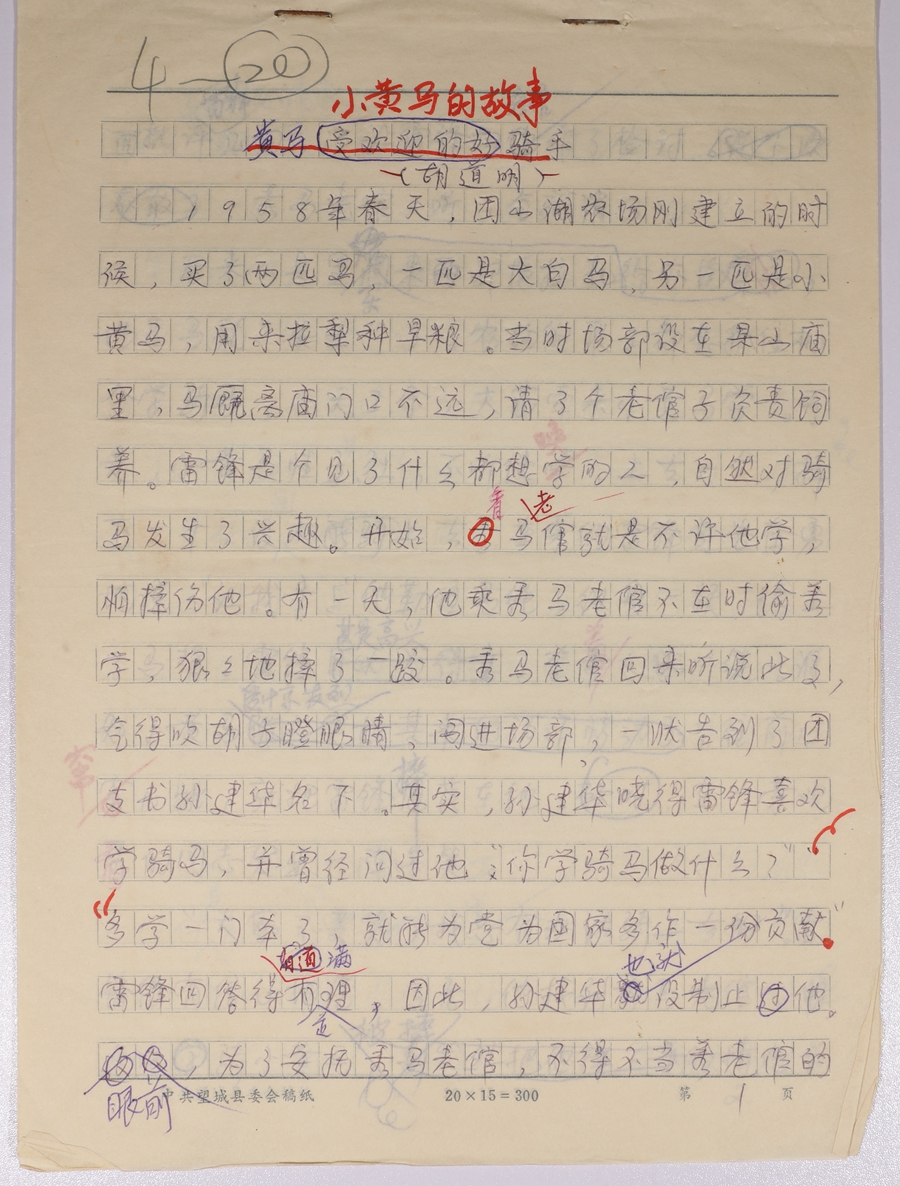 4—20
小黄马的故事
黄马 受欢迎的好骑手
(胡道明)
1958年春天，团山湖农场刚建立的时
候，买了两匹马，一匹是大白马，另一匹是小
黄马，用来拉犁种旱粮。当时场部设在杲山庙
里，马厩离庙门口不远，请了个老倌子负责饲
养。雷锋是个见了什么都想学的人，自然对骑
看 老
马发生了兴趣。开始，马倌就是不许他学，
怕摔伤他。有一天，他乘养马老倌不在时偷着
学，狠々地摔了一跤。养马老倌回来听说此事，
气得吹胡子瞪眼睛，闯进场部，一状告到了团
支书孙建华名下。其实，孙建华晓得雷锋喜欢
学骑马，并曾经问过他："你学骑马做什么？"
"多学一门本事，就能为党为国家多作一份贡献"。
满 也
雷锋回答得有理，因此，孙建华没制止过他。
眼前，为了安抚养马老倌，不得不当着老倌的
中共望城县委会稿纸 20×15=300 第 1 页